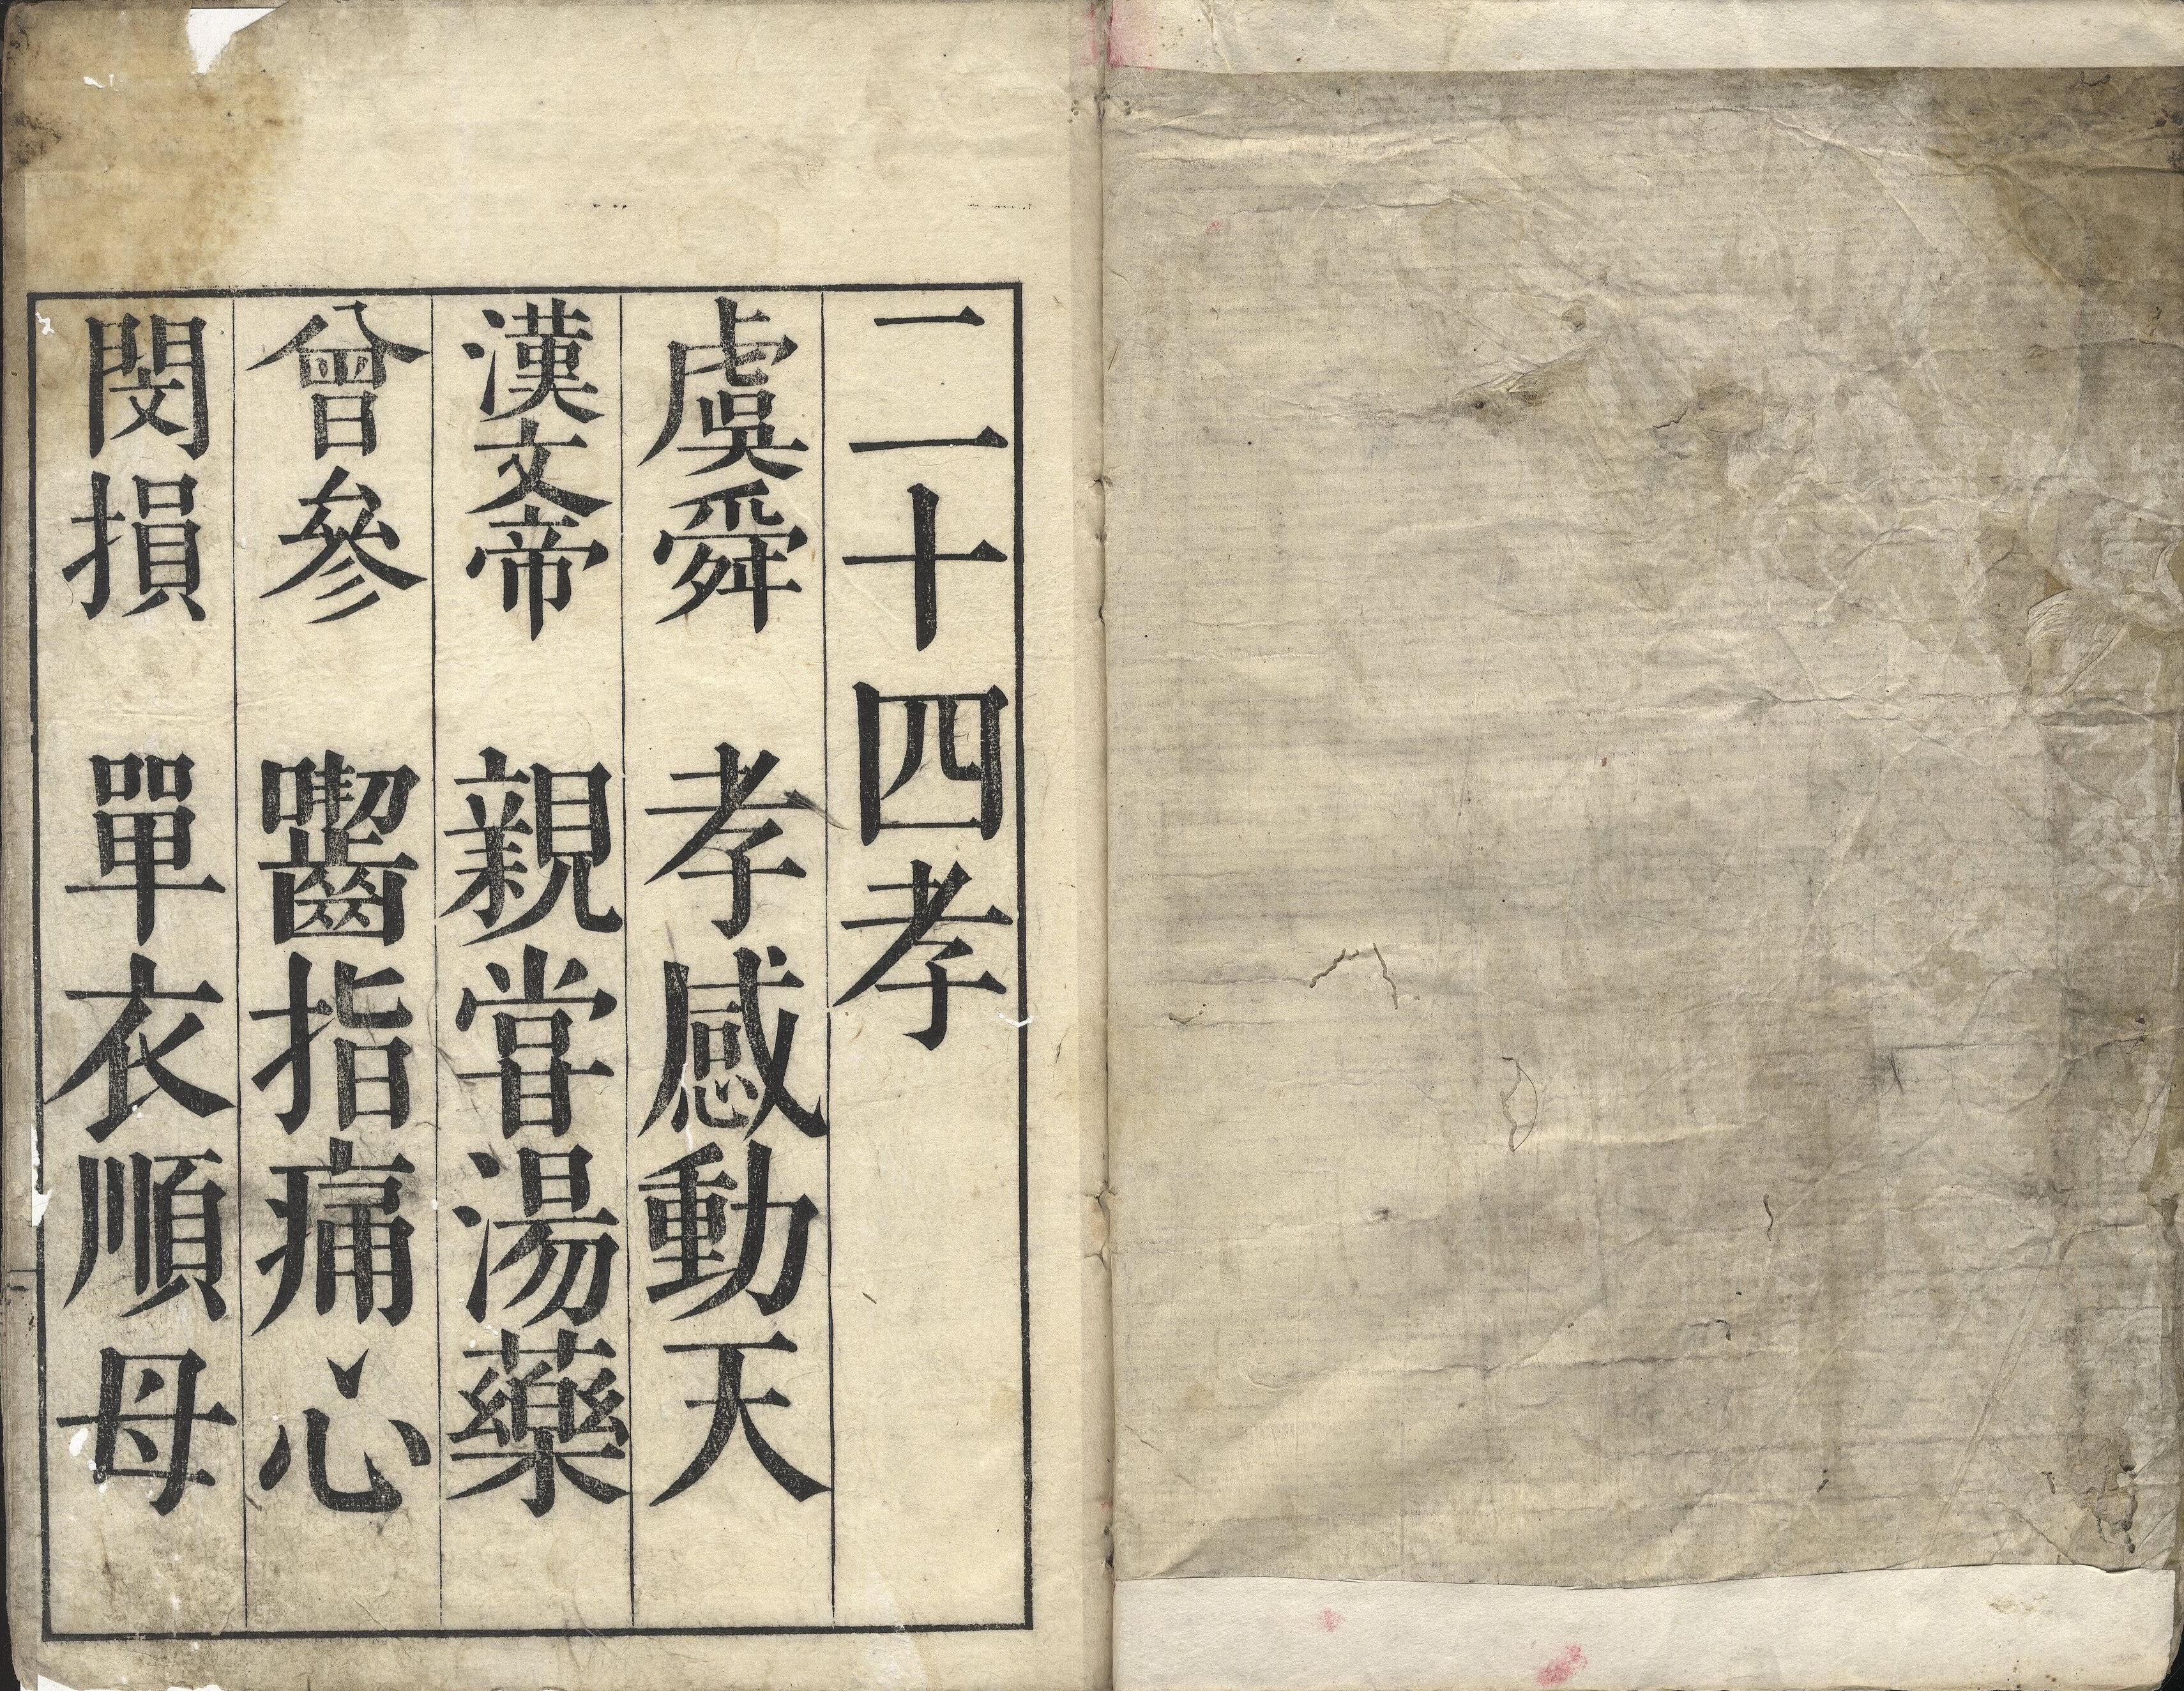 二十四孝
虞舜 孝感動天
漢文帝 親甞湯藥
曾參 囓指痛心
閔損 單衣順母